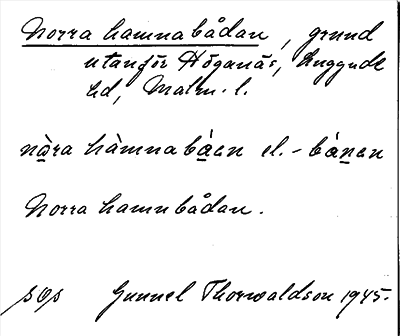 Norra hamnabådan, grund
utanför Höganäs, Luggude
hd, Malm. l.
nàra hàmnabåen el. -bånen
Norra hamnbådan.
Gunnel Thorwaldson 1945.